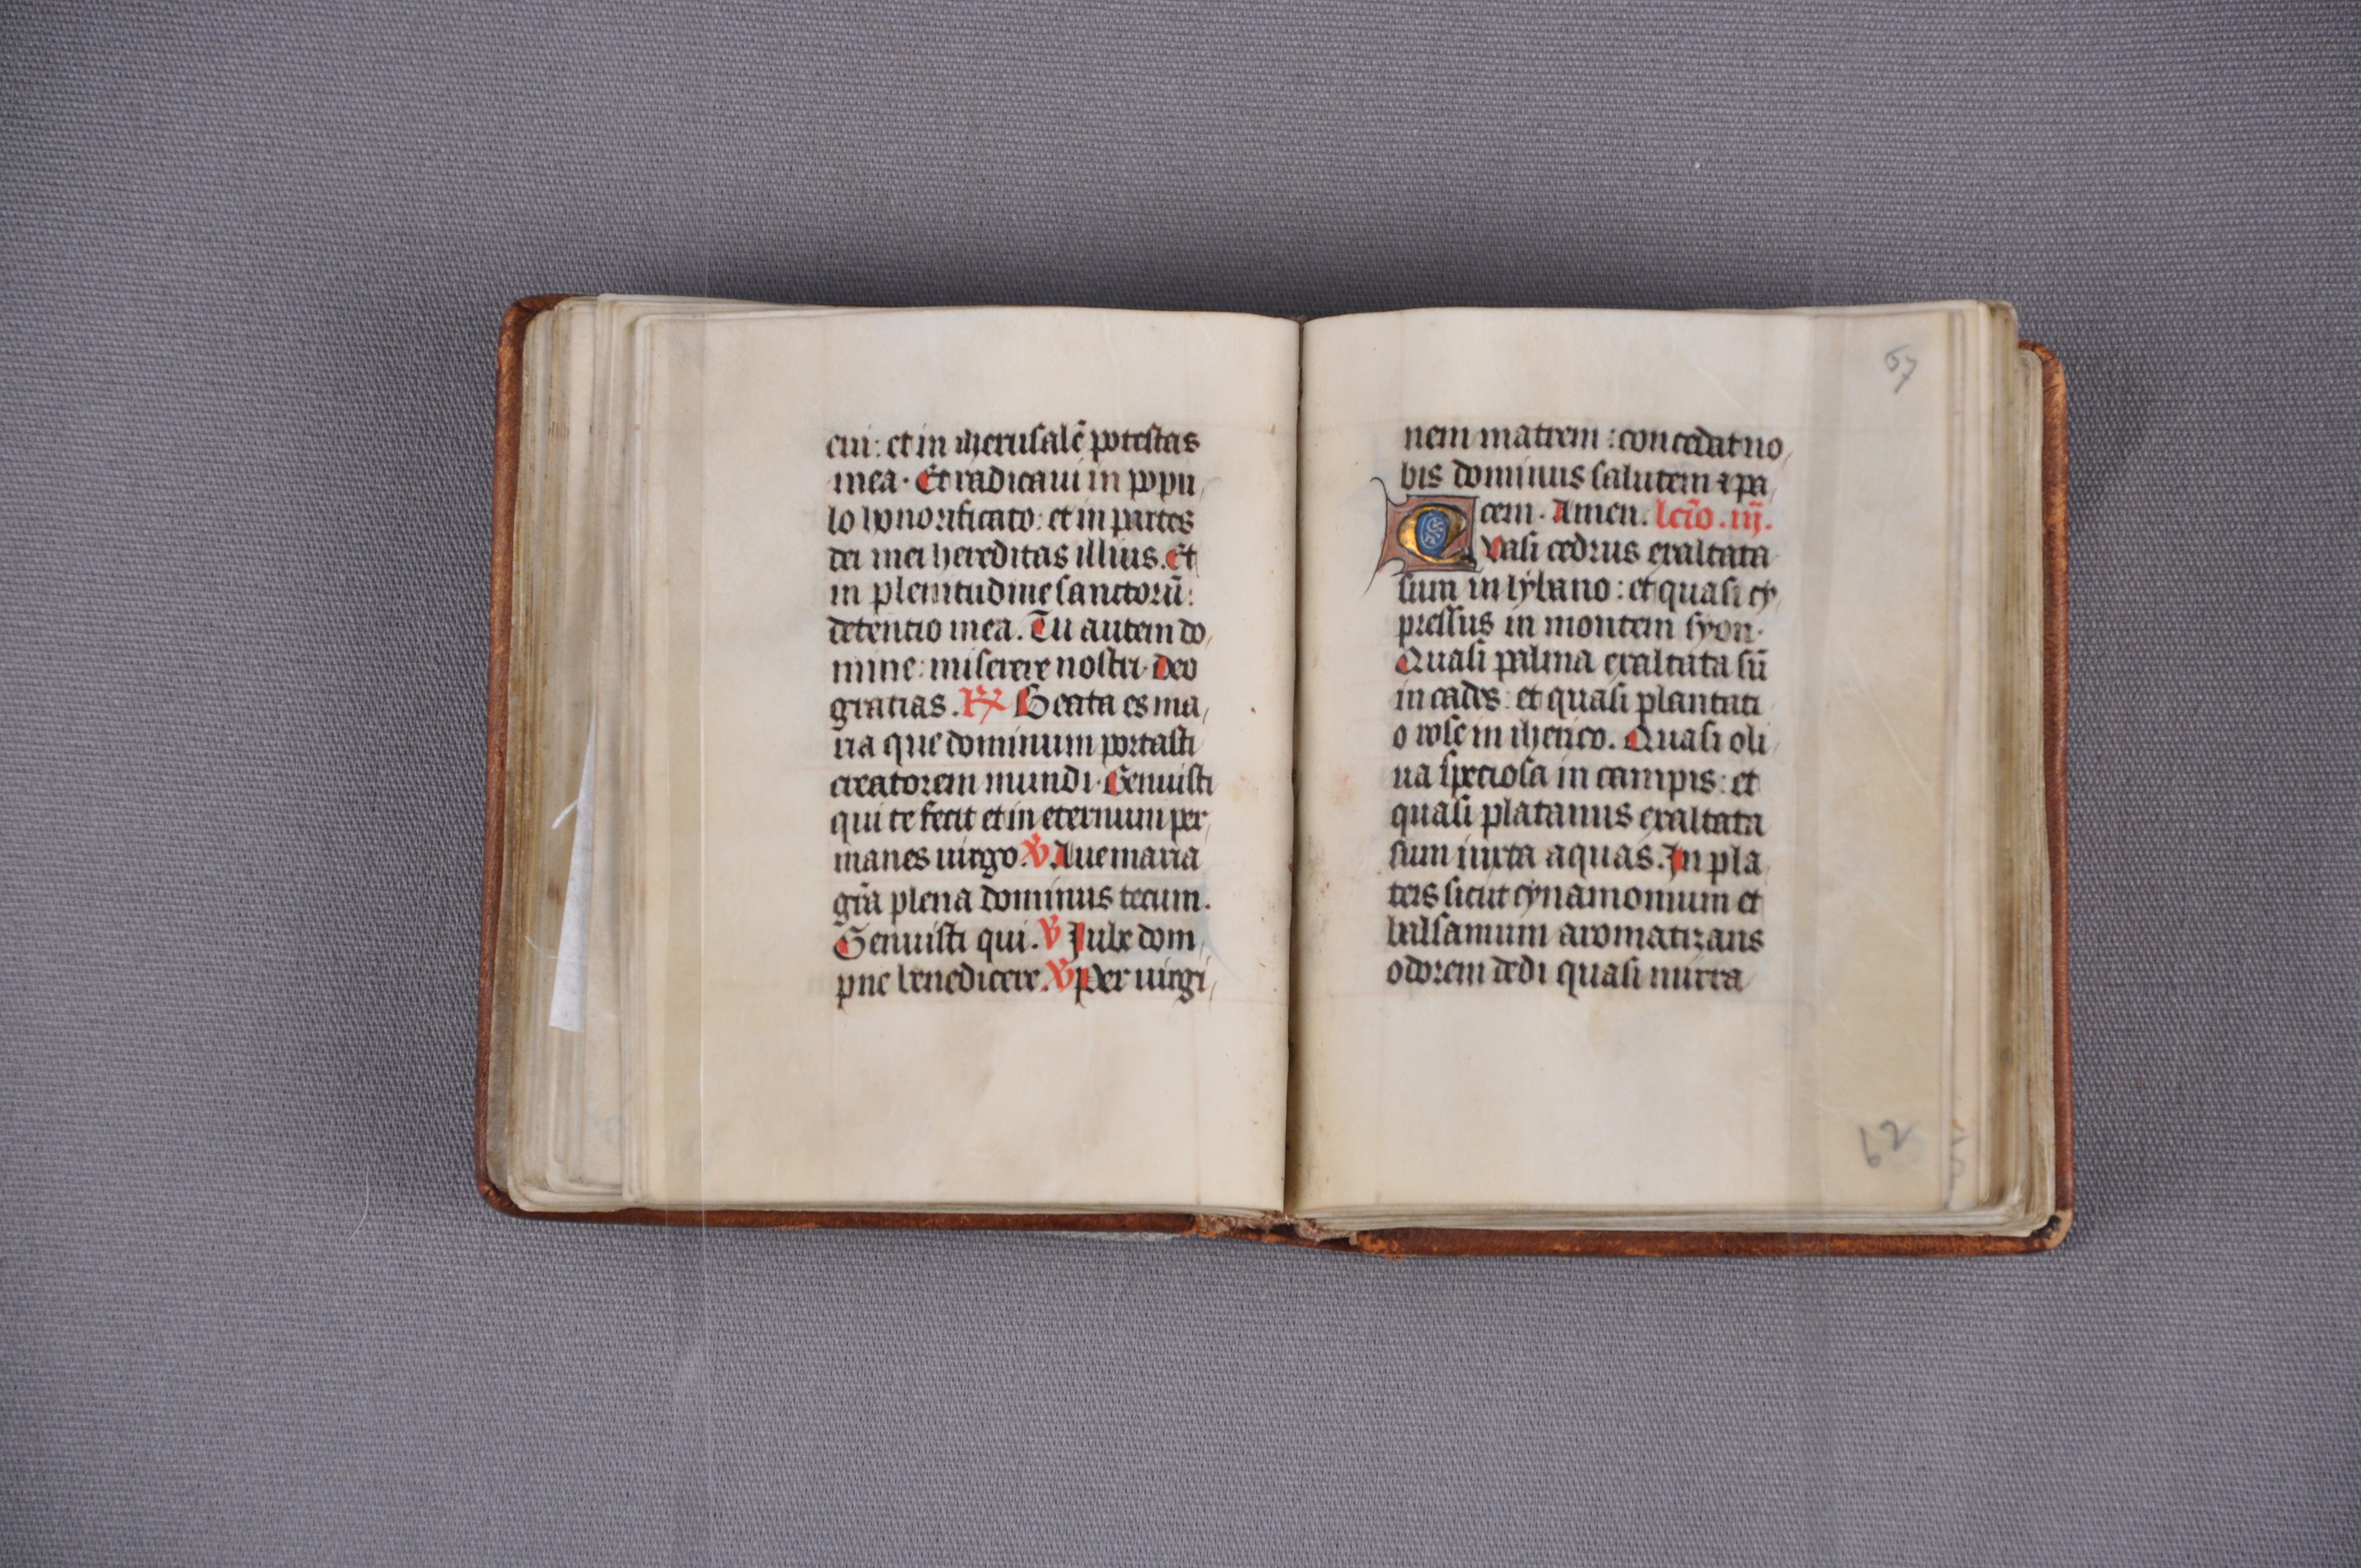 cui: et in iherusalē potestas
mea. Et radicaui in popu
lo honorificato: et in partes
dei mei hereditas illius. Et
in plenitudine sanctorū:
detencio mea. Tu autem do
mine: miserere nostri. Deo
gratias. R Beata es ma
ria que dominum portasti
creatorem mundi. Genuisti
qui te fecit et in eternum per
manes uirgo. V Aue maria
grā plena dominus tecum.
Genuisti qui. V Iube dom
pne benedicere. V Per uirgi
67
nem matrem: concedat no
bis dominus salutem ⁊ pa
cem. Amen. lcīo. iij.
Quasi cedrus exaltata
sum in lybano: et quasi cy
pressus in montem syon.
Quasi palma exaltata sū
in cades: et quasi plantati
o rose in iherico. Quasi oli
ua speciosa in campis: et
quasi platanus exaltata
sum iuxta aquas. In pla
teis sicut cynamomum et
balsamum aromatizans
odorem dedi quasi mirra
62